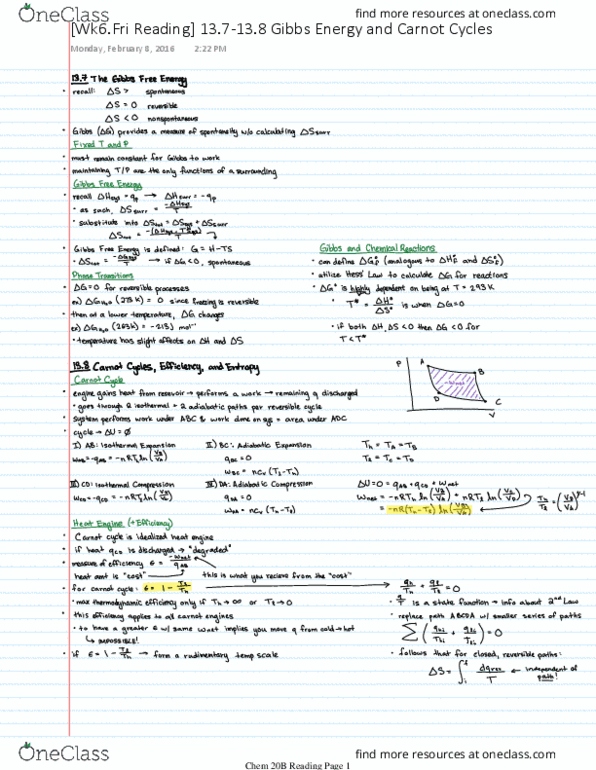 OneClass
find more resources at oneclass.com
[Wk6.Fri Reading] 13.7-13.8 Gibbs Energy and Carnot Cycles
Monday, February 8, 2016 2:22 PM
13.7 The Gibbs Free Energy
• recall: ΔS > spontaneous
ΔS = 0 reversible
ΔS < 0 nonspontaneous
• Gibbs (ΔG) provides a measure of spontaneity w/o calculating ΔSsurr
Fixed T and P
• must remain constant for Gibbs to work
• maintaining T/P are the only functions of a surrounding
Gibbs Free Energy
• recall ΔHsys = qp → ΔHsurr = -qp
• as such, ΔSsurr = -ΔHsys/T
• substitute into ΔStot = ΔSsys + ΔSsurr
ΔStot =
• Gibbs Free Energy is defined: G = H-TS
• ΔStot = → if ΔG<0, spontaneous
Phase Transitions
• ΔG=0 for reversible processes
ex) ΔGH2O (273K) = 0 since freezing is reversible
• then at a lower temperature, ΔG changes
ex) ΔGH2O (263K) = -213J mol⁻¹
• temperature has slight affects on ΔH and ΔS
Gibbs and Chemical Reactions
• can define ΔG°f (analogous to ΔH°f and ΔS°f)
• utilize Hess' Law to calculate ΔG for reactions
• ΔG° is highly dependent on being at T = 293K
• T* = ΔH°/ΔS° is when ΔG=0
• if both ΔH, ΔS<0 then ΔG <0 for
T<T*
13.8 Carnot Cycles, Efficiency, and Entropy
Carnot Cycle
• engine gains heat from reservoir → performs a work → remaining q discharged
• goes through 2 isothermal + 2 adiabatic paths per reversible cycle
• system performs work under ABC & work done on sys = area under ADC
• cycle → ΔU = 0
P
A
B
D
C
V
I) AB: Isothermal Expansion
wAB = -qAB = -nRTh ln(VB/VA)
II) BC: Adiabatic Expansion
qBC = 0
wBC = ncv (Tl-Th)
Th = TA = TB
Tl = TC = TD
III) CD: Isothermal Compression
wCD = -qCD = -nRTl ln(VD/VC)
IV) DA: Adiabatic Compression
qDA = 0
wDA = ncv (Th-Tl)
ΔU=0 = qAB + qCD + wnet
= -nR(Th-Tl) ln(VB/VA)
Heat Engine (+Efficiency)
• Carnot cycle is idealized heat engine
• if heat qCD is discharged → "degraded"
• measure of efficiency ε = -wnet/qAB
heat ent is "cost" this is what you recieve from the "cost"
• for carnot cycle: ε = 1 - Tl/Th
• max thermodynamic efficiency only if Th→∞ or Tl→0
• this efficiency applies to all carnot engines
• to have a greater ε w/ same wnet implies you move q from cold→hot
↳ impossible!
• if ε = 1 - Tl/Th → form a rudimentary temp scale
qh/Th + ql/Tl = 0
• q/T is a state function → info about 2nd Law
• replace path ABCDA w/ smaller series of paths
∑(qhi/Thi + qli/Tli) = 0
• follows that for closed, reversible paths:
ΔS = ∫ᵢᶠ dqrev/T ← independent of path!
OneClass
find more resources at oneclass.com
Chem 20B Reading Page 1